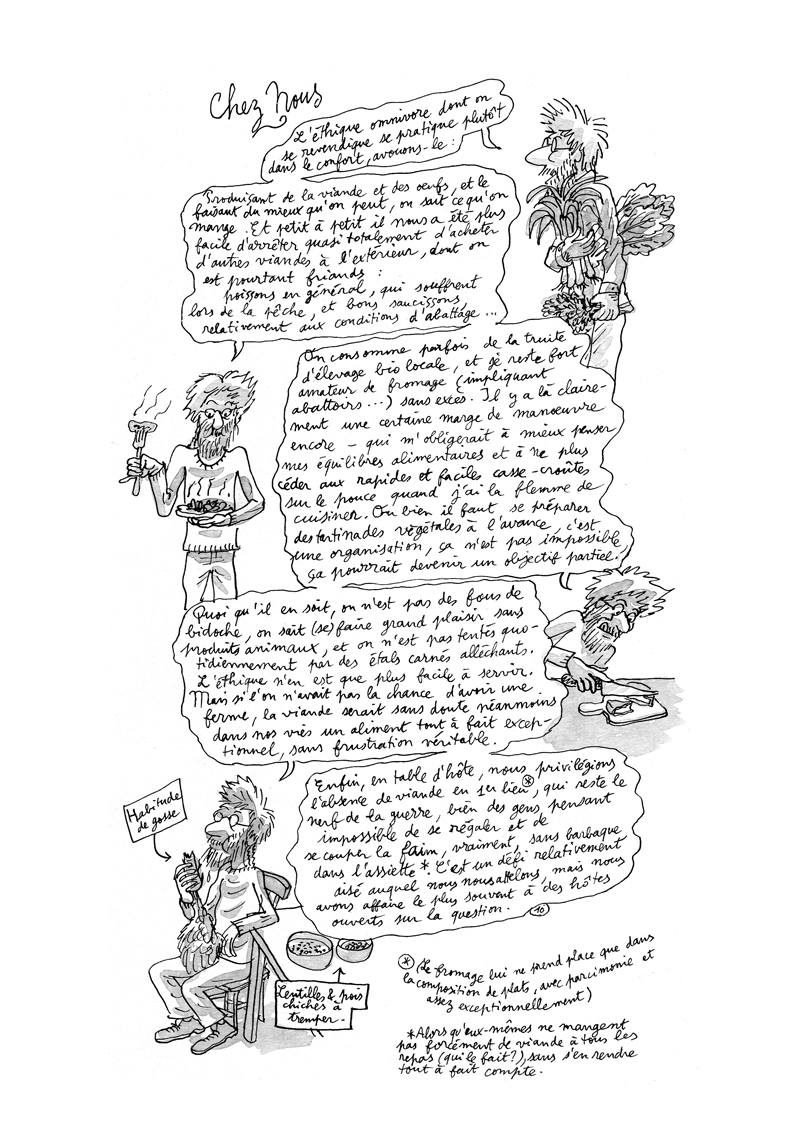 Chez Nous
L'éthique omnivore dont on
se revendique se pratique plutôt
dans le confort, avouons-le :
Produisant de la viande et des oeufs, et le
faisant du mieux qu'on peut, on sait ce qu'on
mange. Et petit à petit il nous a été plus
facile d'arrêter quasi totalement d'acheter
d'autres viandes à l'extérieur, dont on
est pourtant friands :
poissons en général, qui souffrent
lors de la pêche, et bons saucissons,
relativement aux conditions d'abattage ...
On consomme parfois de la truite
d'élevage bio locale, et je reste fort
amateur de fromage (impliquant
abattoirs...) sans excès. Il y a là claire-
ment une certaine marge de manoeuvre
encore – qui m'obligerait à mieux penser
mes équilibres alimentaires et à ne plus
céder aux rapides et faciles casse-croûtes
sur le pouce quand j'ai la flemme de
cuisiner. Ou bien il faut se préparer
des tartinades végétales à l'avance, c'est
une organisation, ça n'est pas impossible,
ça pourrait devenir un objectif partiel.
Quoi qu'il en soit, on n'est pas des fous de
bidoche, on sait (se) faire grand plaisir sans
produits animaux, et on n'est pas tentés quo-
tidiennement par des étals carnés alléchants.
L'éthique n'en est que plus facile à servir.
Mais si l'on n'avait pas la chance d'avoir une
ferme, la viande serait sans doute néanmoins
dans nos vies un aliment tout à fait excep-
tionnel, sans frustration véritable.
Enfin, en table d'hôte, nous privilégions
l'absence de viande en 1er lieu*, qui reste le
nerf de la guerre, bien des gens pensant
impossible de se régaler et de
se couper la faim, vraiment, sans barbaque
dans l'assiette*. C'est un défi relativement
aisé auquel nous nous attelons, mais nous
avons affaire le plus souvent à des hôtes
ouverts sur la question.
10
Habitude
de gosse
Lentilles & pois
chiches à
tremper.
* (Le fromage lui ne prend place que dans
la composition de plats, avec parcimonie et
assez exceptionnellement)
*Alors qu'eux-mêmes ne mangent
pas forcément de viande à tous les
repas (qui le fait?), sans s'en rendre
tout à fait compte.